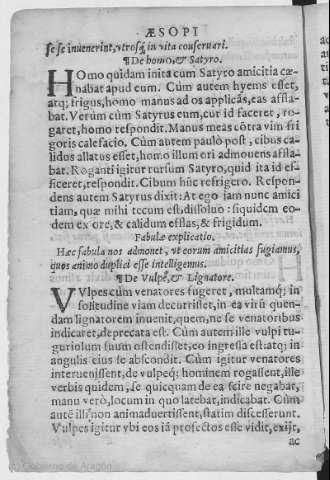 ÆSOPI
se se inuenerint, vtrosq; in vita conseruari.
¶ De homo, & Satyro.
HOmo quidam inita cum Satyro amicitia cœ-
nabat apud eum. Cùm autem hyems esset,
atq; frigus, homo manus ad os applicās, eas affla-
bat. Verùm cùm Satyrus eum, cur id faceret, ro-
garet, homo respondit. Manus meas cōtra vim fri
goris calefacio. Cùm autem paulò pòst, cibus ca-
lidus allatus esset, homo illum ori admouens affla-
bat. Roganti igitur rursùm Satyro, quid ita id ef-
ficeret, respondit. Cibum hūc refrigero. Respon-
dens autem Satyrus dixit: At ego iam nunc amici
tiam, quæ mihi tecum est, dissoluo: siquidem eo-
dem ex ore, & calidum efflas, & frigidum.
Fabulæ explicatio.
Hæc fabula nos admonet, vt eorum amicitias fugiamus,
quos animo duplici esse intelligemus.
¶ De Vulpe, & Lignatore.
VVlpes cùm venatores fugeret, multamq; in
solitudine viam decurrisset, in ea virū quen-
dam lignatorem inuenit, quem, ne se venatoribus
indicaret, deprecata est. Cùm autem ille vulpi tu-
guriolum suum ostendisset, eo ingressa est atq; in
angulis eius se abscondit. Cùm igitur venatores
interuenissent, de vulpeq; hominem rogassent, ille
verbis quidem, se quicquam de ea scire negabat,
manu verò, locum in quo latebat, indicabat. Cùm
autē illi non animaduertissent, statim discesserunt.
Vulpes igitur vbi eos iā profectos esse vidit, exijt,
ac
© Gobierno de Aragón